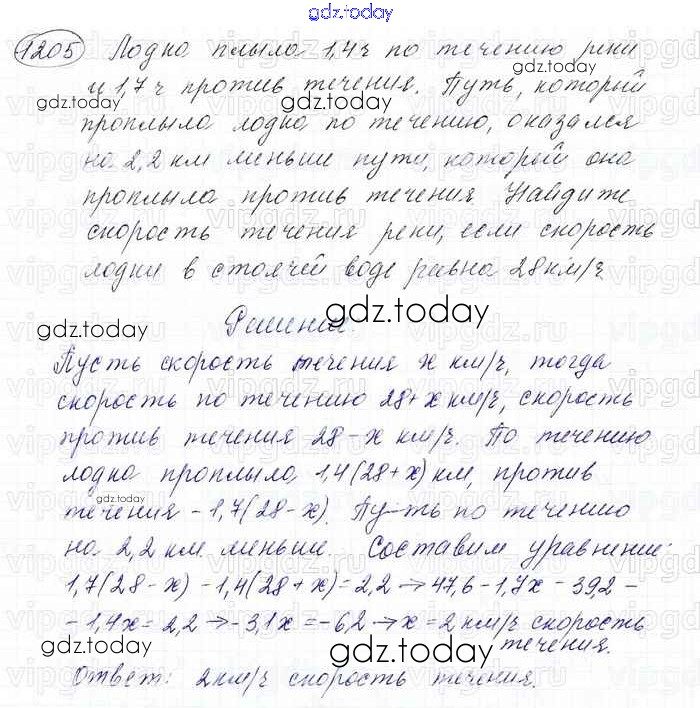 gdz.today
1205 Лодка плыла 1,4 ч по течению реки
и 1,7 ч против течения. Путь, который
gdz.today gdz.today gdz.today
проплыла лодка по течению, оказался
на 2,2 км меньше пути, который она
проплыла против течения Найдите
скорость течения реки, если скорость
лодки в стоячей воде равна 28 км/ч
gdz.today
gdz.today
Решение.
gdz.today
Пусть скорость течения x км/ч, тогда
скорость по течению 28+x км/ч, скорость
против течения 28-x км/ч. По течению
лодка проплыла 1,4(28+x) км, против
gdz.today
течения - 1,7(28-x). Путь по течению
на 2,2 км меньше. Составим уравнение:
1,7(28-x) - 1,4(28+x) = 2,2 → 47,6 - 1,7x - 39,2 -
- 1,4x = 2,2 → -3,1x = -6,2 → x = 2 км/ч скорость
течения.
gdz.today
gdz.today
Ответ: 2 км/ч скорость течения.